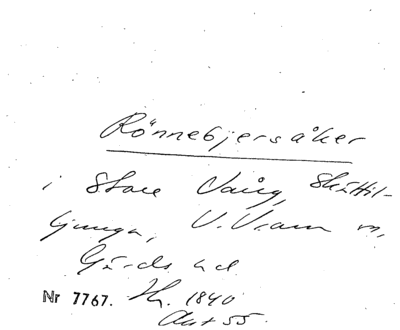 Rönnebjersåker
i Stora Vång, Skättil-
ljunga, V. Vram m,
Gärds hd
Nr 7767. Hh. 1840
Akt 55.